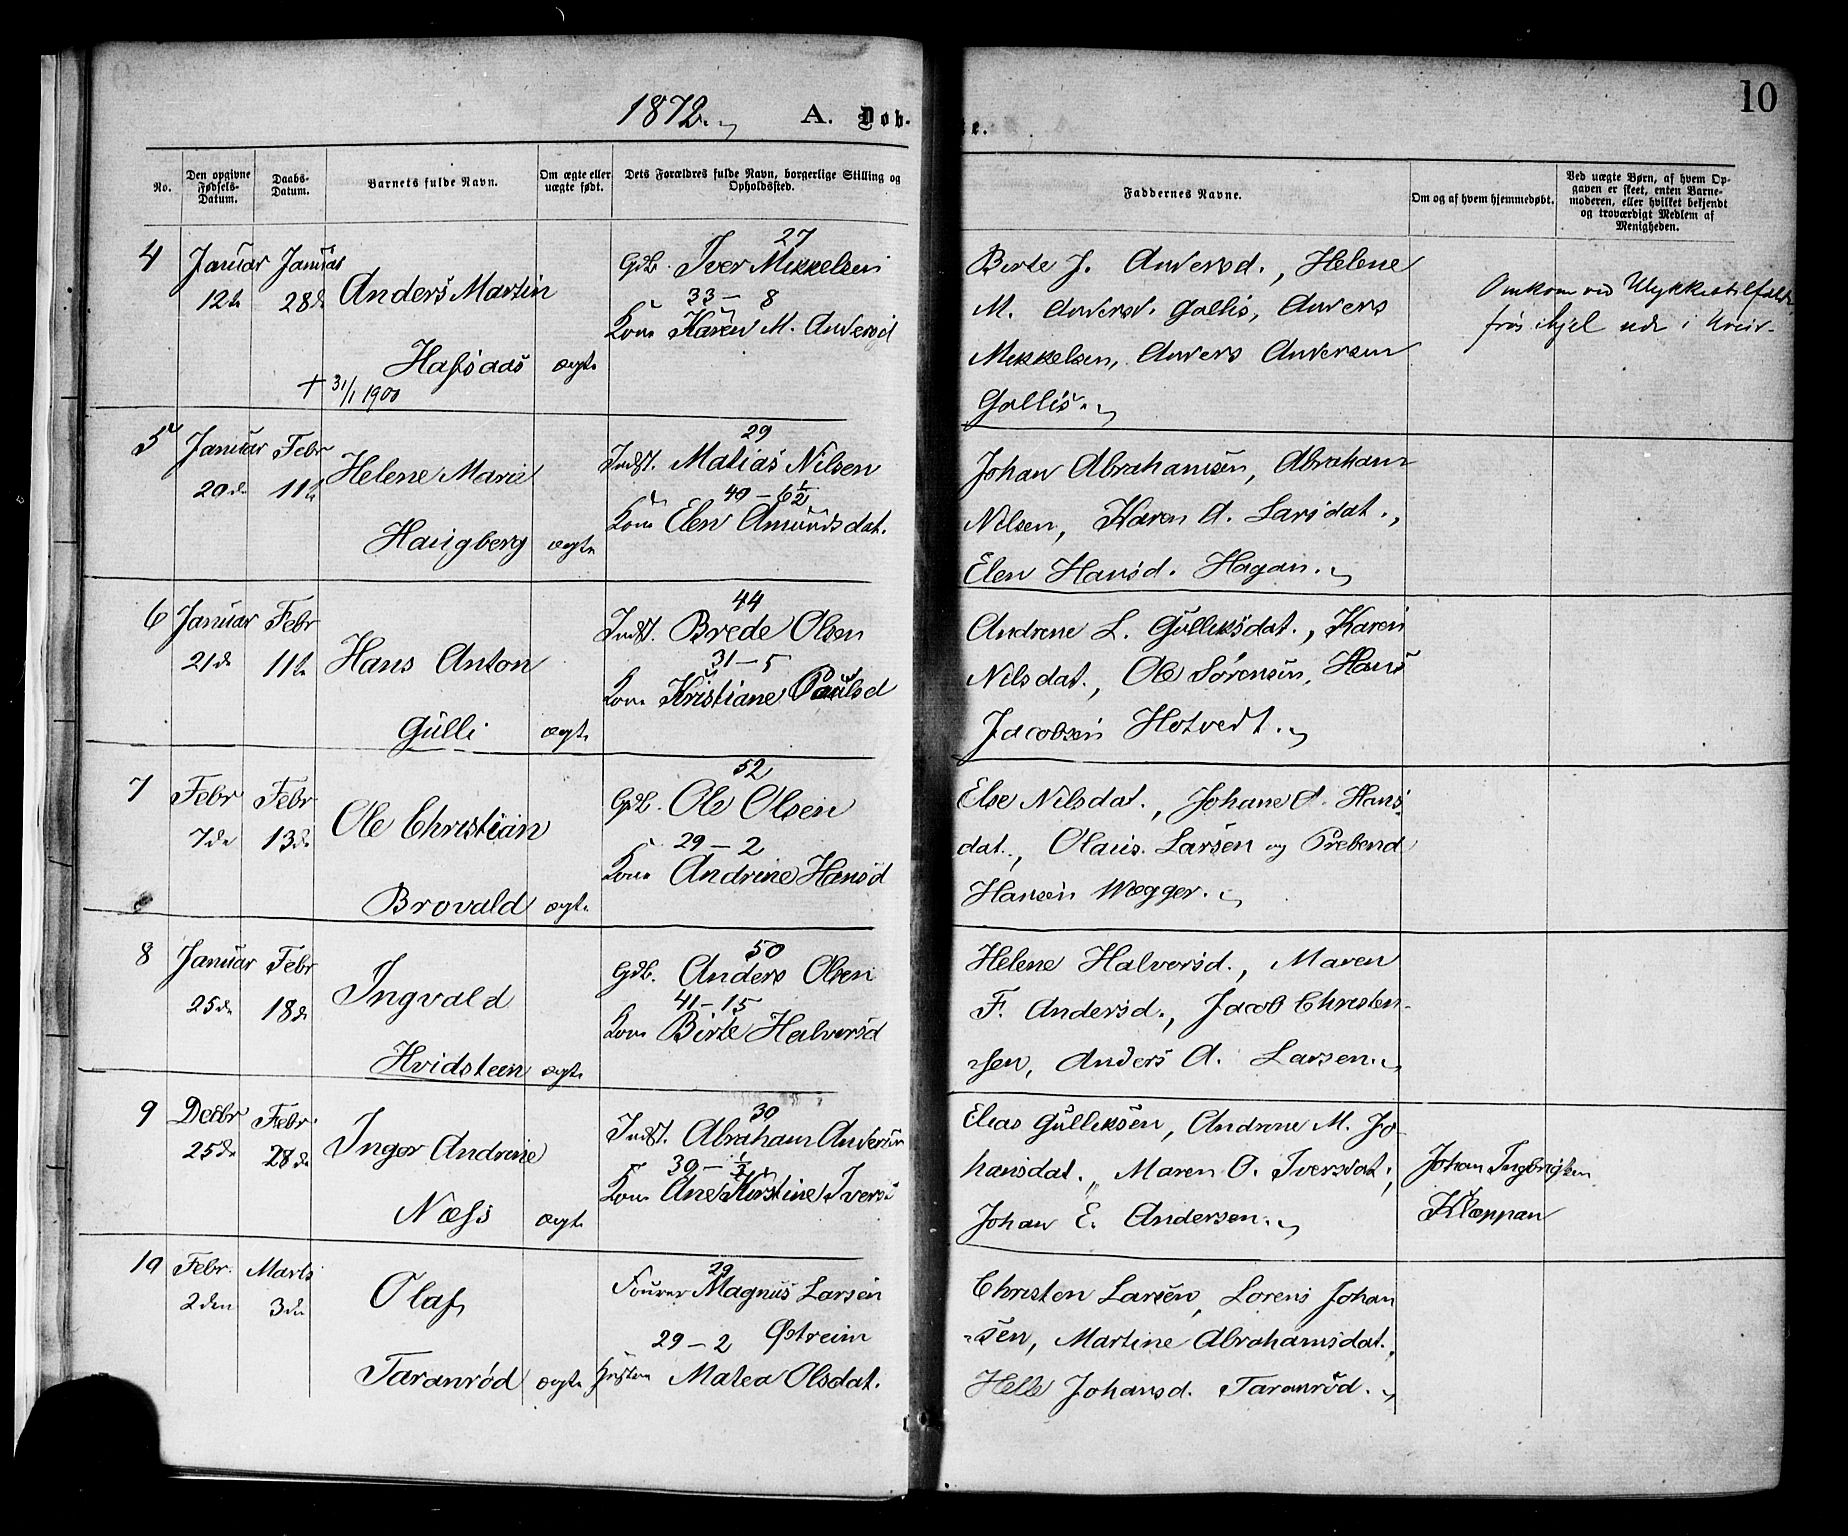 1872.
A. Døb-
te.
10
No.
Den opgivne Fødsels-Datum.
Daabs-Datum.
Barnets fulde Navn.
Om ægte eller uægte født.
Dets Forældres fulde Navn, borgerlige Stilling og Opholdssted.
Faddernes Navne.
Om og af hvem hjemmedøbt.
Ved uægte Børn, af hvem Opgaven er skeet, enten Barnemoderen, eller hvilket bekjendt og troværdigt Medlem af Menigheden.
4 Januar Januar
12te 28de
Anders Martin
Hafsaas ægte
+ 31/1 1900
27
Gdb. Iver Mikkelsen
33 – 8
Kone Karen M. Andersd
Birte J. Andersd., Helene
M. Andersd. Gallis, Anders
Mikkelsen, Anders Andersen
Gallis.
Omkom ved Ulykkestilfælde
frøs ihjel ude i Uveir.
5 Januar Febr
20de 11te
Helene Marie
Haugberg ægte
29
Indst. Matias Nilsen
40 – 6 1/2
Kone Elen Amundsdat.
Johan Abrahamsen, Abraham
Nilsen, Karen A. Larsdat.,
Elen Hansd. Hagan.
6 Januar Febr
21de 11te
Hans Anton
Gulli ægte
44
Indst. Brede Olsen
31 – 5
Kone Kristiane Paulsd
Andrene L. Gulliksdat., Karen
Nilsdat., Ole Sørensen, Hans
Jacobsen Hotvedt.
7 Febr Febr
7de 13de
Ole Christian
Brovald ægte
52
Gdb. Ole Olsen
29 – 2
Kone Andrine Hansd
Else Nilsdat., Johane A. Hans
dat., Olaus Larsen og Prebend
Hansen Wegger.
8 Januar Febr
25de 18de
Ingvald
Hvidsteen ægte
50
Gdb. Anders Olsen
41 – 15
Kone Birte Halvorsd
Helene Halvorsd., Maren
F. Andersd., Jacob Christen-
sen, Anders A. Larsen.
9 Decbr Febr
25de 28de
Inger Andrine
Næss ægte
30
Indst. Abraham Andersen
30 – 1/2
Kone Ane Kirstine Ivers
Elias Gulliksen, Andrene M. Jo
hansdat., Maren O. Iversdat.,
Johan E. Andersen.
Johan Ingbrigtsen
Kleppan
10 Febr. Marts
2den 3de
Olaf
Taranrød ægte
29
Fourer Magnus Larsen
29 – 2 Østreim
Hustru Matea Olsdat.
Christen Larsen, Lorens Johan
-sen, Martine Abrahamsdat.,
Helle Johansd. Taranrød.